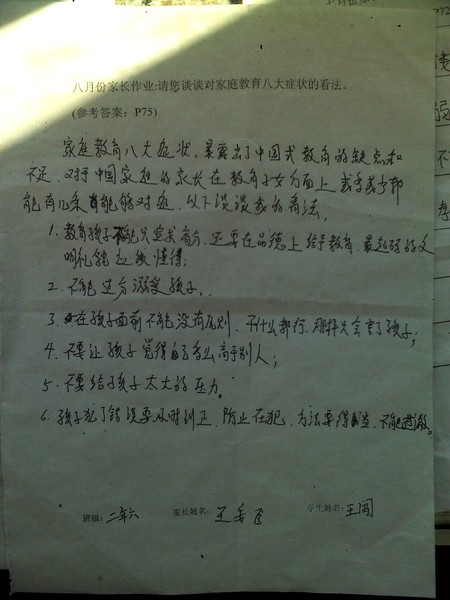 八月份家长作业:请您谈谈对家庭教育八大症状的看法。
(参考答案：P75)
家庭教育八大症状，暴露出了中国式教育的缺点和
不足，对于中国家庭的家长在教育子女方面上或多或少都
能有几条能够对症，以下谈谈我的看法。
1. 教育孩子不能只要求高分，还要在品德上给予教育，最起码的文
明礼能应该懂得；
2. 不能过分溺爱孩子。
3. 在孩子面前不能没有原则，干什么都行，那样只会害了孩子；
4. 不要让孩子觉得自己有么高于别人；
5. 不要给孩子太大的压力。
6. 孩子犯了错误要及时纠正，防止在犯，方法要得当，不能过激。
班级: 二年六 家长姓名: 王 学生姓名: 王闯